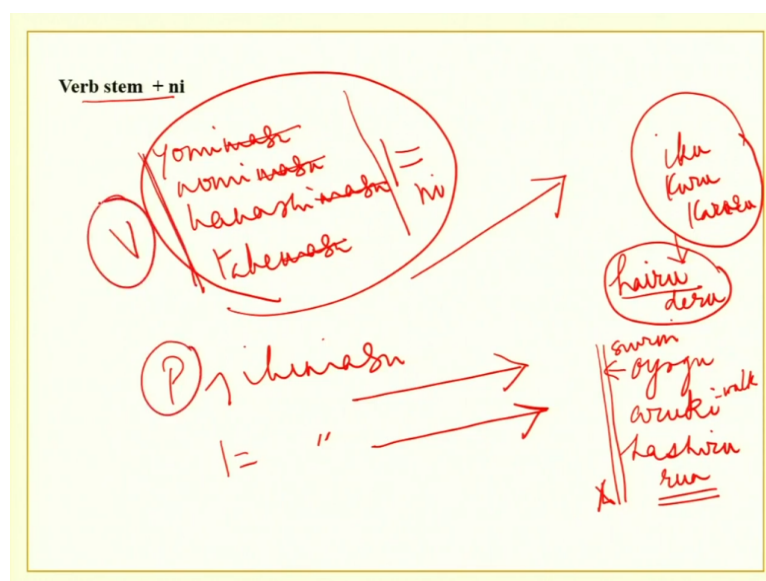 Verb stem + ni
yomimasu
nomimasu
hanashimasu
tabemasu
V
1=
ni
iku
Kuru
Kaeru
hairu
deru
P ikimasu
1= "
swim
oyogu
aruki - walk
hashiru
run